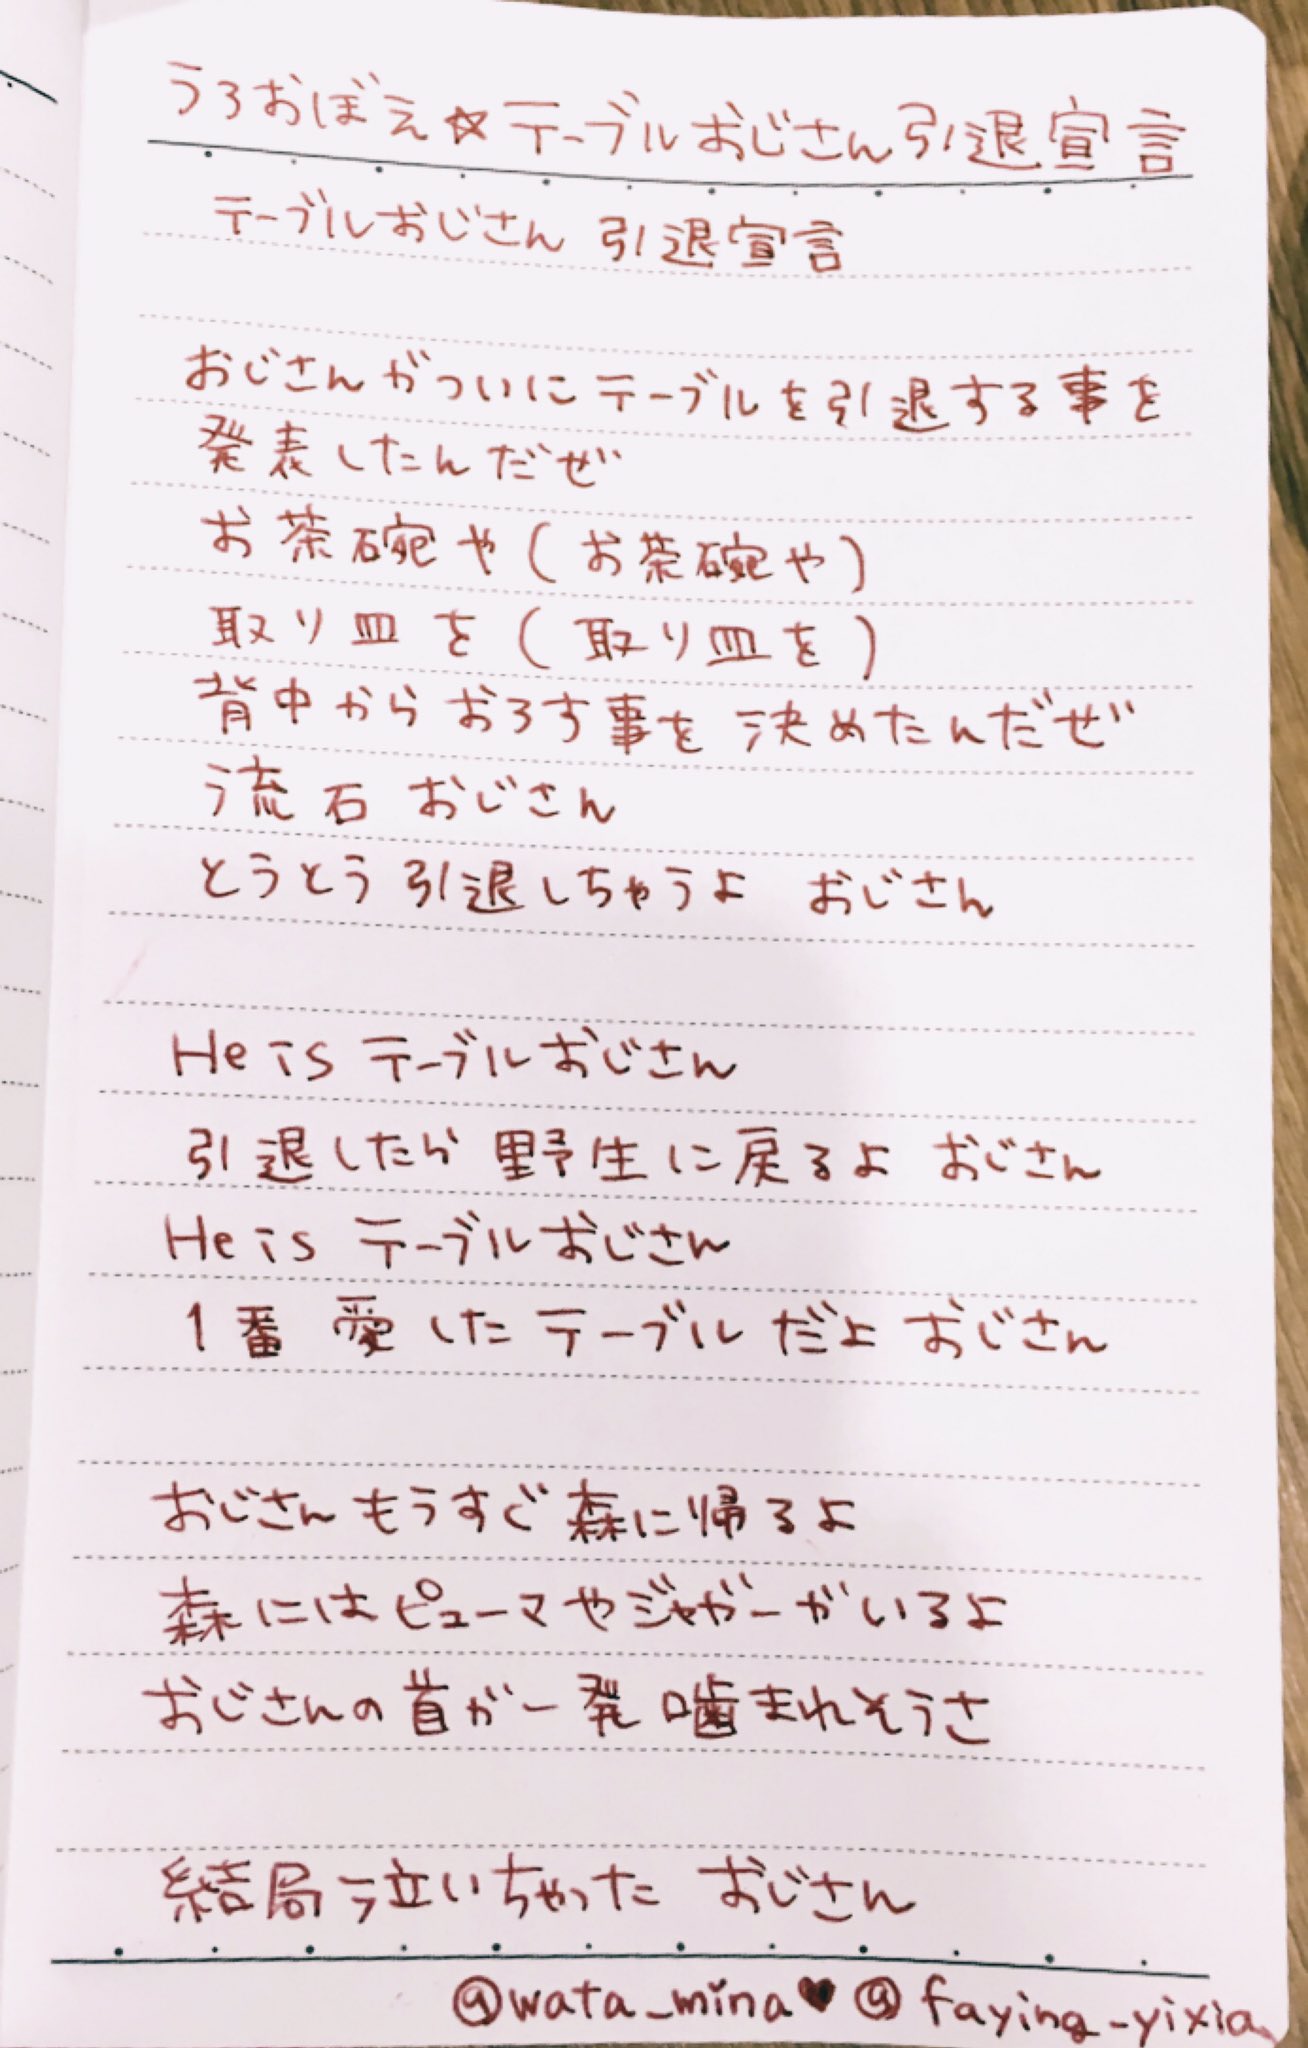 うろおぼえ☆テーブルおじさん引退宣言
テーブルおじさん 引退宣言
おじさんがついにテーブルを引退する事を
発表したんだぜ
お茶碗や(お茶碗や)
取り皿を(取り皿を)
背中からおろす事を決めたんだぜ
流石 おじさん
とうとう引退しちゃうよ おじさん
He is テーブルおじさん
引退したら野生に戻るよ おじさん
He is テーブルおじさん
1番 愛したテーブルだよ おじさん
おじさんもうすぐ森に帰るよ
森にはピューマやジャガーがいるよ
おじさんの首が一発噛まれそうさ
結局泣いちゃった おじさん
@wata_mina♥@faying_yixia